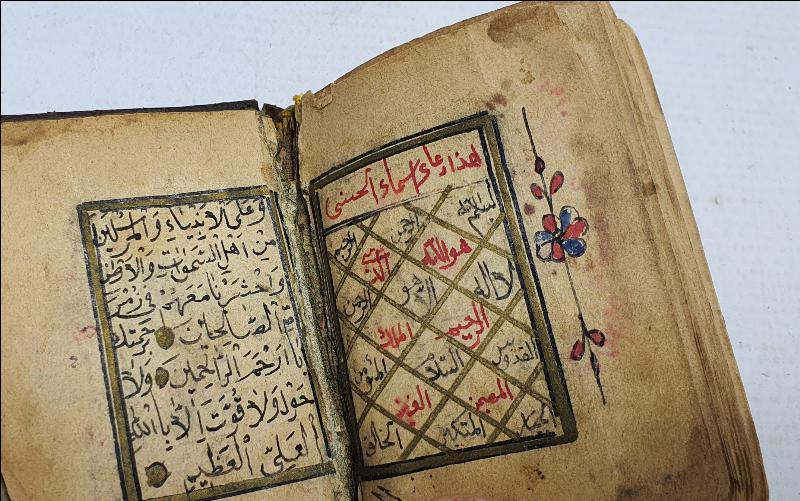 هذا دعاء اسماء الحسنى
بسم الله الرحمن الرحيم
هو الله الذى
لا اله الا هو الرحمن
الرحيم الملك
القدوس السلام المؤمن
المهيمن العزيز
الجبار المتكبر الخالق
وعلى الانبياء والمرسلين
من اهل السموات والارضين
واحشرنا معهم فى زمرة
الصالحين برحمتك
يا ارحم الراحمين ولا
حول ولا قوت الا بالله
العلى العظيم